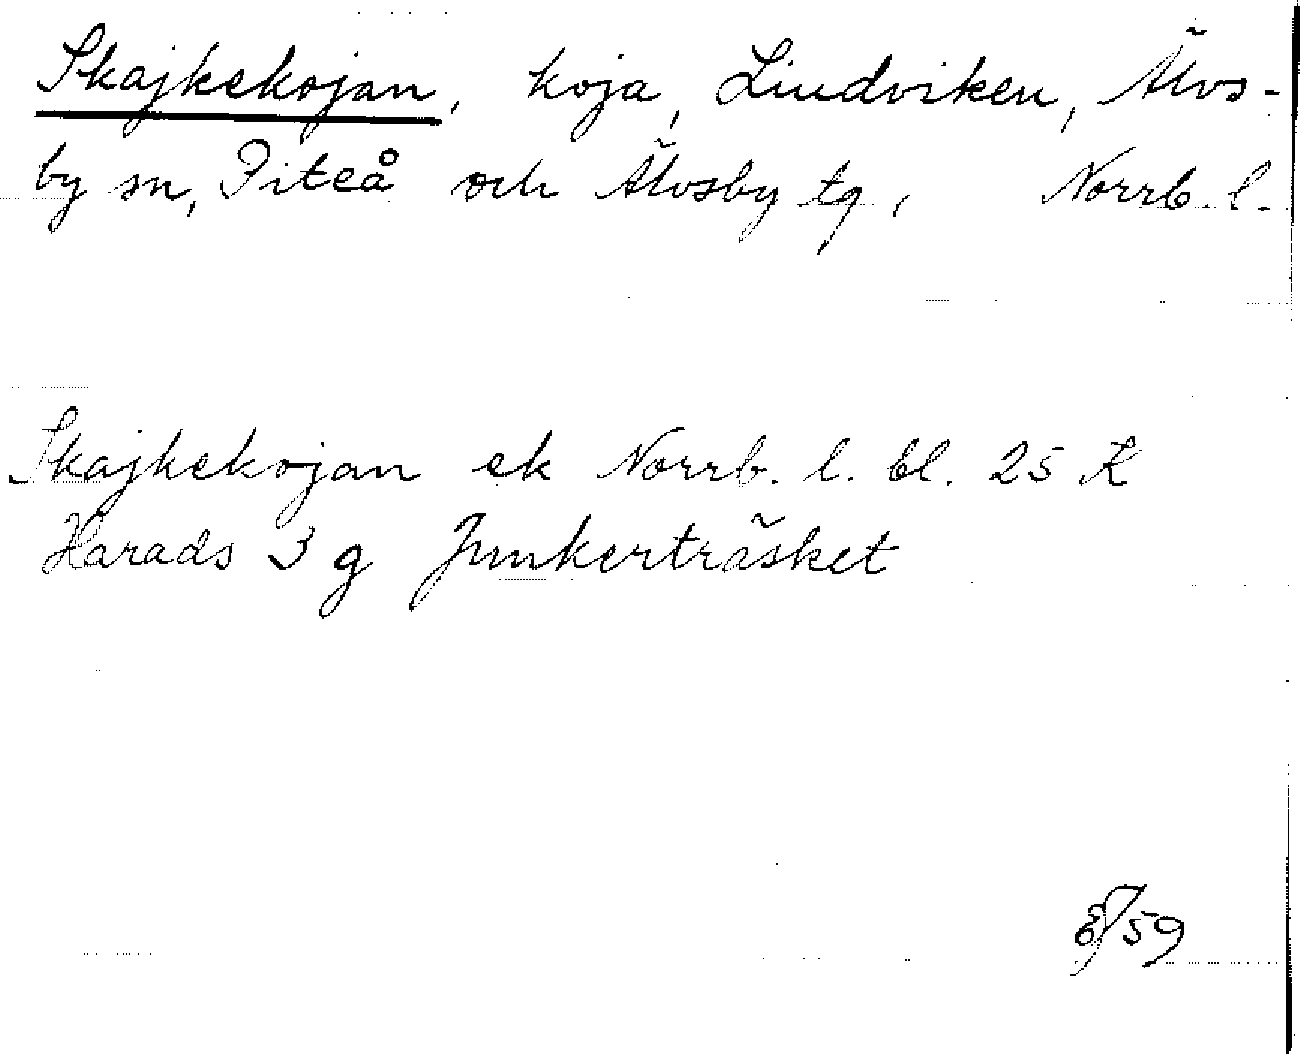 Skajkekojan, koja, Lindviken, Älvs-
by sn, Piteå och Älvsby tg, Norrb. l.
Skajkekojan ek Norrb. l. bl. 25 K
Harads 3 g Junkerträsket